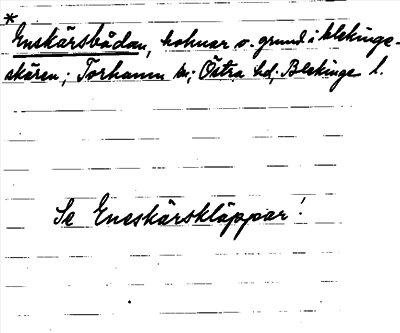 *
Enskärsbådan, holmar o. grund i blekinge-
skären; Torhamn sn; Östra hd; Blekinge l.
Se Eneskärskläppar!